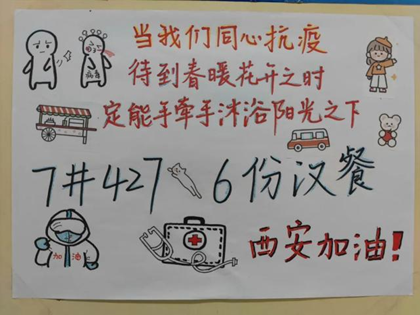 当我们同心抗疫
病毒
待到春暖花开之时
定能手牵手沐浴阳光之下
7#427 6份汉餐
加油
西安加油!